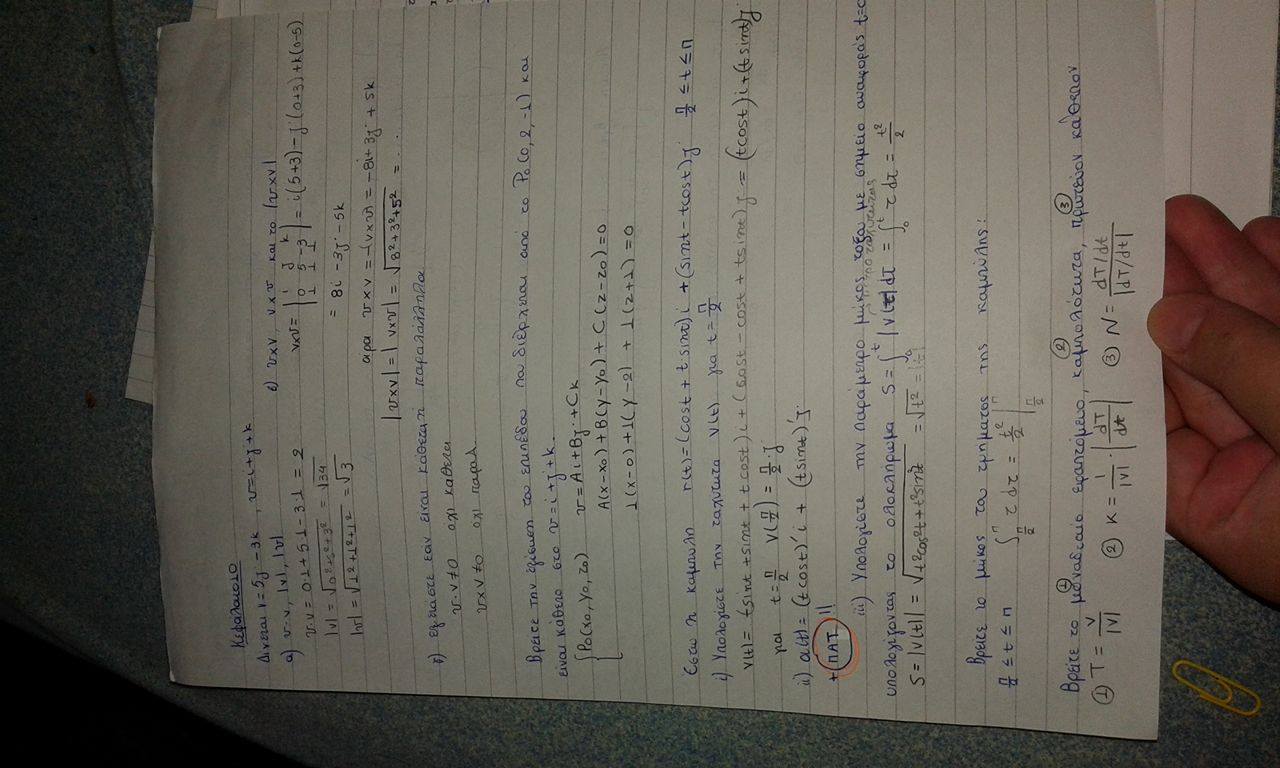 Κεφάλαιο 10
Δίνεται v=5j-3k, v=i+j+k
α) v·v, |v|, |v|
v·v = 0·1+5·1-3·1 = 2
|v| = √0²+5²+3² = √34
|v| = √1²+1²+1² = √3
ε) v×v, v×v και το |v×v|
v×v = |i j k / 0 5 -3 / 1 1 1| = i(5+3)-j(0+3)+k(0-5)
= 8i-3j-5k
αρα v×v = -(v×v) = -8i+3j+5k
|v×v| = |v×v| = √8²+3²+5² = ...
β) εξετάστε εαν είναι κάθετα η παράλληλα
v·v≠0 οχι κάθετα
v×v≠0 οχι παραλ
Βρείτε την εξίσωση του επιπέδου που διέρχεται από το P0(0,2,-1) και
είναι κάθετο στο v=i+j+k.
P0(x0,y0,z0) v=Ai+Bj+Ck
A(x-x0)+B(y-y0)+C(z-z0)=0
1(x-0)+1(y-2)+1(z+1)=0
Έστω η καμπύλη r(t)=(cost+tsint)i+(sint-tcost)j π/2≤t≤π
i) Υπολογίστε την ταχύτητα v(t) για t=π/2
v(t)= -sint+sint+tcost)i+(cost-cost+tsint)j=(tcost)i+(tsint)j
για t=π/2 v(π/2)=π/2·j
ii) a(t)=(tcost)'i+(tsint)'j
+ΠΑΤ!!
iii) Υπολογίστε την παράμετρο μήκος τόξου με σημείο αναφοράς t=0
υπολογίζοντας το ολοκλήρωμα S=∫₀ᵗ|v(τ)|dτ = ∫₀ᵗ τ dτ = t²/2
S=|v(t)| = √t²cos²t+t²sin²t = √t² = |t|
Βρείτε το μήκος του τμήματος της καμπύλης:
π/2≤t≤π ∫ τ dτ = t²/2 |
Βρείτε το μοναδιαίο ① εφαπτόμενο, καμπυλότητα ②, πρωτεύον κάθετον ③
① T=v/|v| ② κ=1/|v|·|dT/dt| ③ N=dT/dt/|dT/dt|